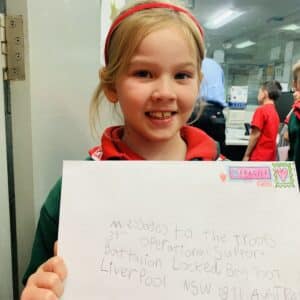 Messages to the Troops
Operational Support
Battalion Locked Bag 7007
Liverpool NSW 1871 AUSTRA